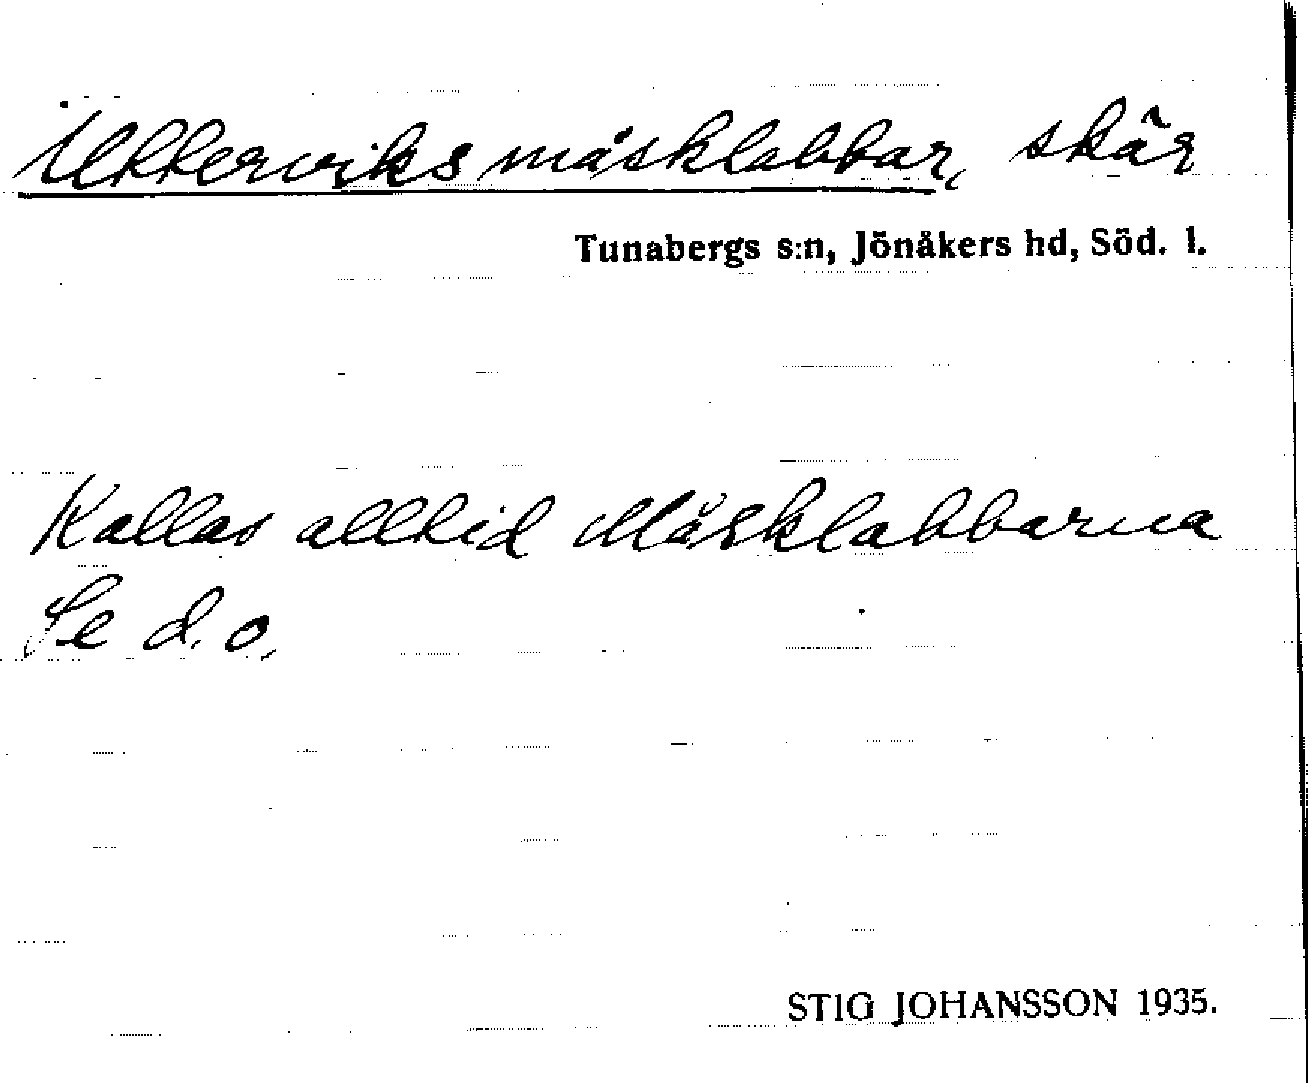 Utterviks måsklabbar, skär
Tunabergs s:n, Jönåkers hd, Söd. l.
Kallas alltid Måsklabbarna
Se d.o.
STIG JOHANSSON 1935.